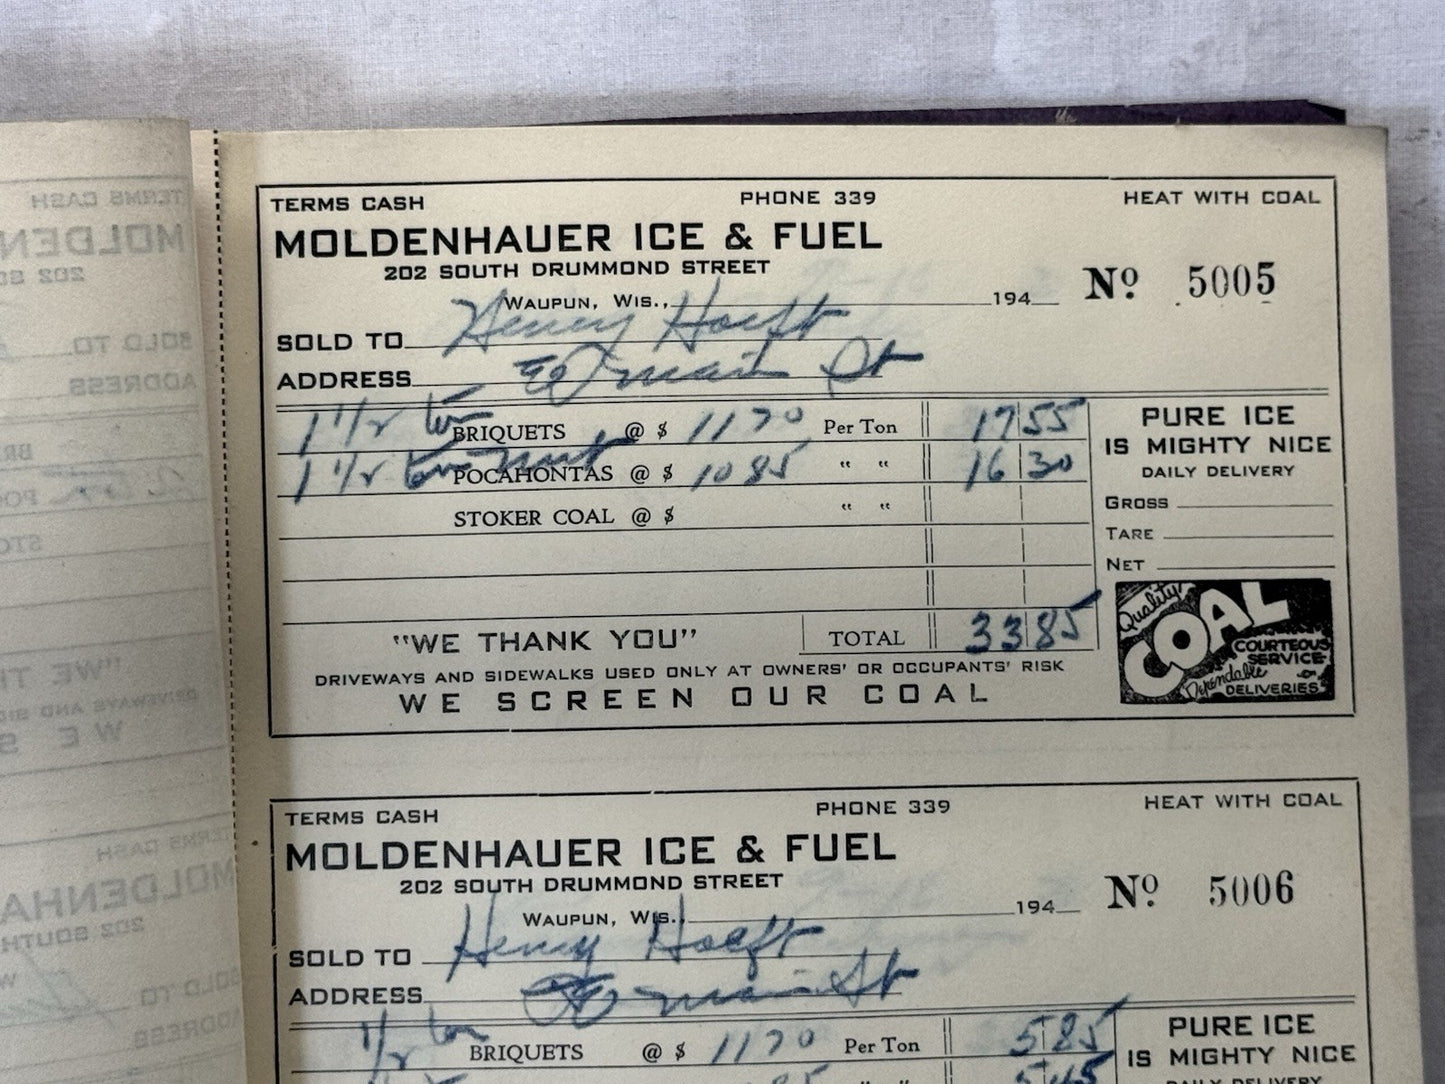 TERMS CASH PHONE 339 HEAT WITH COAL
MOLDENHAUER ICE & FUEL
202 SOUTH DRUMMOND STREET
WAUPUN, WIS., 194 Nº 5005
SOLD TO Henry Hoeft
ADDRESS main St
1 1/2 ton BRIQUETS @ $ 11 70 Per Ton 17 55
1 1/2 ton nut POCAHONTAS @ $ 10 85 " " 16 30
STOKER COAL @ $ " "
"WE THANK YOU" TOTAL 33 85
DRIVEWAYS AND SIDEWALKS USED ONLY AT OWNERS' OR OCCUPANTS' RISK
WE SCREEN OUR COAL
PURE ICE
IS MIGHTY NICE
DAILY DELIVERY
GROSS
TARE
NET
Quality
COAL
COURTEOUS
SERVICE
Dependable
DELIVERIES
TERMS CASH PHONE 339 HEAT WITH COAL
MOLDENHAUER ICE & FUEL
202 SOUTH DRUMMOND STREET
WAUPUN, WIS., 194 Nº 5006
SOLD TO Henry Hoeft
ADDRESS main St
1/2 ton BRIQUETS @ $ 11 70 Per Ton 5 85
PURE ICE
IS MIGHTY NICE
DAILY DELIVERY
85 " " 5 45